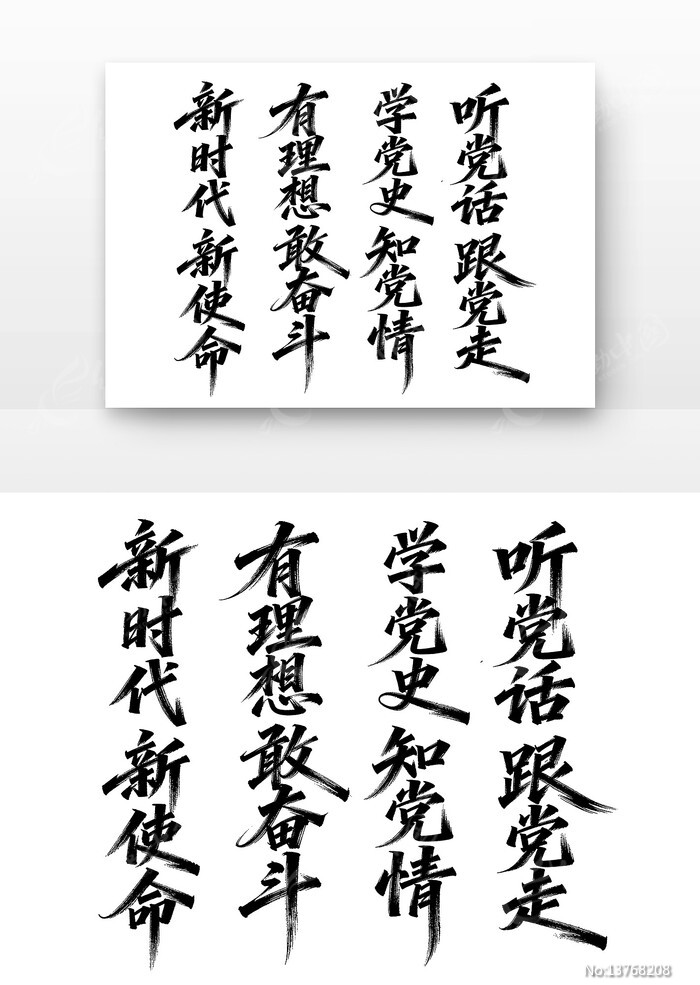 听党话 跟党走
学党史 知党情
有理想 敢奋斗
新时代 新使命
听党话 跟党走
学党史 知党情
有理想 敢奋斗
新时代 新使命
No:13768208